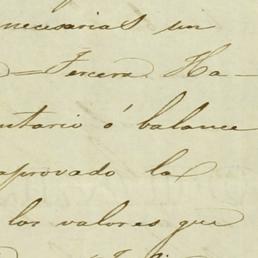 necesarias un
Tercera. Ha-
ntario ó balance
aprovado la
los valores que